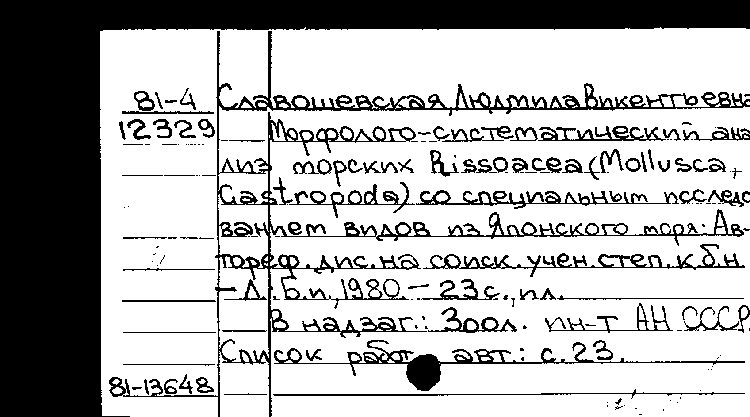 81-4 Славошевская, Людмила Викентьевна
12329 Морфолого-систематический ана
лиз морских Rissoacea (Mollusca,
Gastropoda) со специальным исследо
ванием видов из Японского моря: Ав-
тореф. дис. на соиск. учен. степ. к.б.н
- Л.: Б.и., 1980. - 23 с., ил.
В надзаг.: Зоол. ин-т АН СССР.
Список работ авт.: с. 23.
81-13648